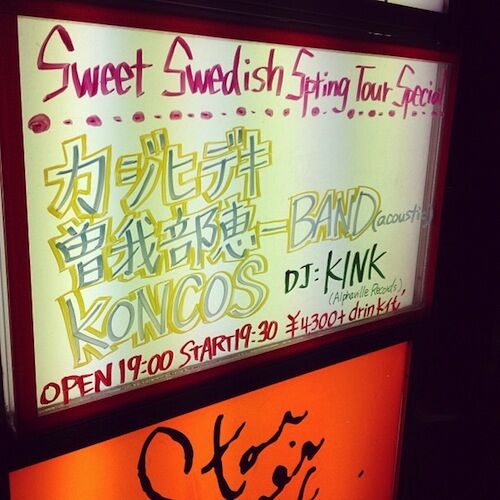 Sweet Swedish Spring Tour Special
カジヒデキ
曽我部恵一BAND(acoustic)
KONCOS
DJ: KINK
(Alphaville Records)
OPEN 19:00 START 19:30 ¥4300+drink代